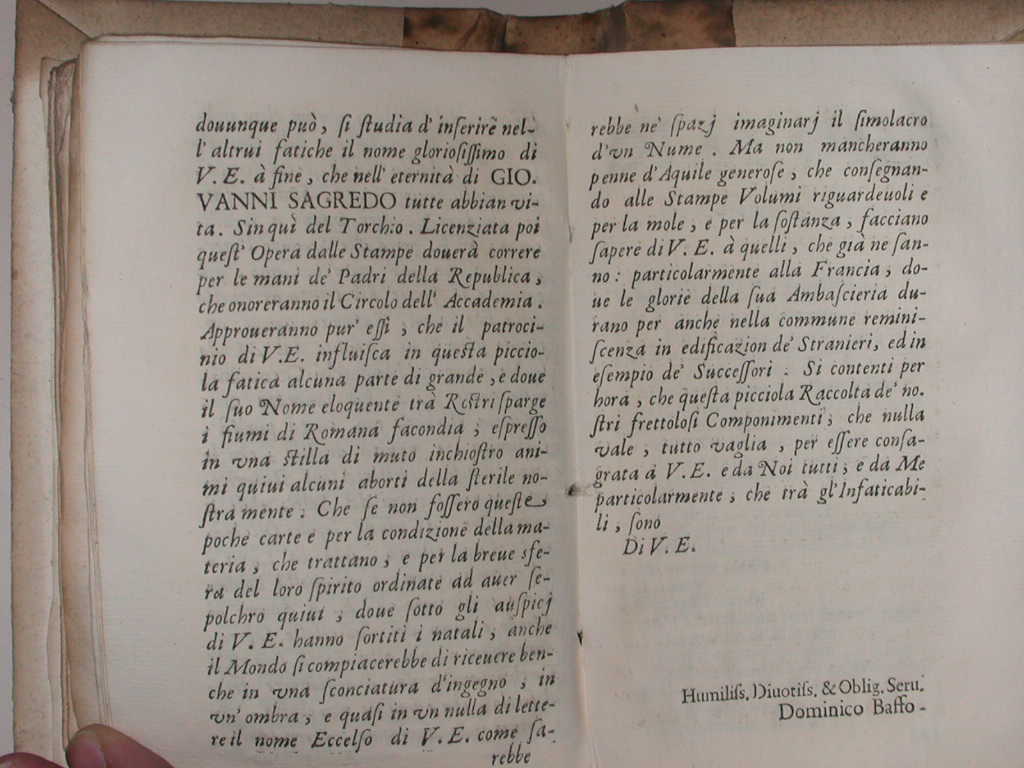 douunque può, ſi ſtudia d' inſerire nel-
l' altrui fatiche il nome glorioſiſſimo di
V. E. à fine, che nell' eternità di GIO.
VANNI SAGREDO tutte abbian vi-
ta. Sin quì del Torchio. Licenziata poi
queſt' Opera dalle Stampe douerà correre
per le mani de' Padri della Republica,
che onoreranno il Circolo dell' Accademia.
Approueranno pur' eſſi, che il patroci-
nio di V.E. influiſca in queſta piccio-
la fatica alcuna parte di grande, e doue
il ſuo Nome eloquente trà Roſtri ſparge
i fiumi di Romana facondia; eſpreſſo
in vna ſtilla di muto inchioſtro ani-
mi quiui alcuni aborti della ſterile no-
ſtra mente. Che ſe non foſſero queſte
poche carte e per la condizione della ma-
teria, che trattano, e per la breue sfe-
ra del loro ſpirito ordinate ad auer ſe-
polchro quiui; doue ſotto gli auſpicj
di V. E. hanno ſortiti i natali, anche
il Mondo ſi compiacerebbe di riceuere ben-
che in vna ſconciatura d'ingegno, in
vn' ombra, e quaſi in vn nulla di lette-
re il nome Eccelſo di V. E. come ſa-
rebbe
rebbe ne' ſpazj imaginarj il ſimolacro
d'vn Nume. Ma non mancheranno
penne d'Aquile generoſe, che conſegnan-
do alle Stampe Volumi riguardeuoli e
per la mole, e per la ſoſtanza, facciano
ſapere di V. E. à quelli, che già ne ſan-
no: particolarmente alla Francia, do-
ue le glorie della ſua Ambaſcieria du-
rano per anche nella commune remini-
ſcenza in edificazion de' Stranieri, ed in
eſempio de' Succeſſori. Si contenti per
hora, che queſta picciola Raccolta de' no.
ſtri frettoloſi Componimenti, che nulla
vale, tutto vaglia, per eſſere conſa-
grata a V. E. e da Noi tutti, e da Me
particolarmente, che trà gl'Infaticabi-
li, ſono
Di V. E.
Humiliſs. Diuotiſs. & Oblig. Seru.
Dominico Baffo.